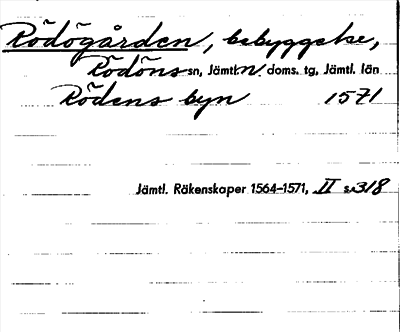 Rödögården, bebyggelse,
Rödöns sn, Jämtl. n. doms. tg, Jämtl. län
Rödens byn 1571
Jämtl. Räkenskaper 1564–1571, II s. 318